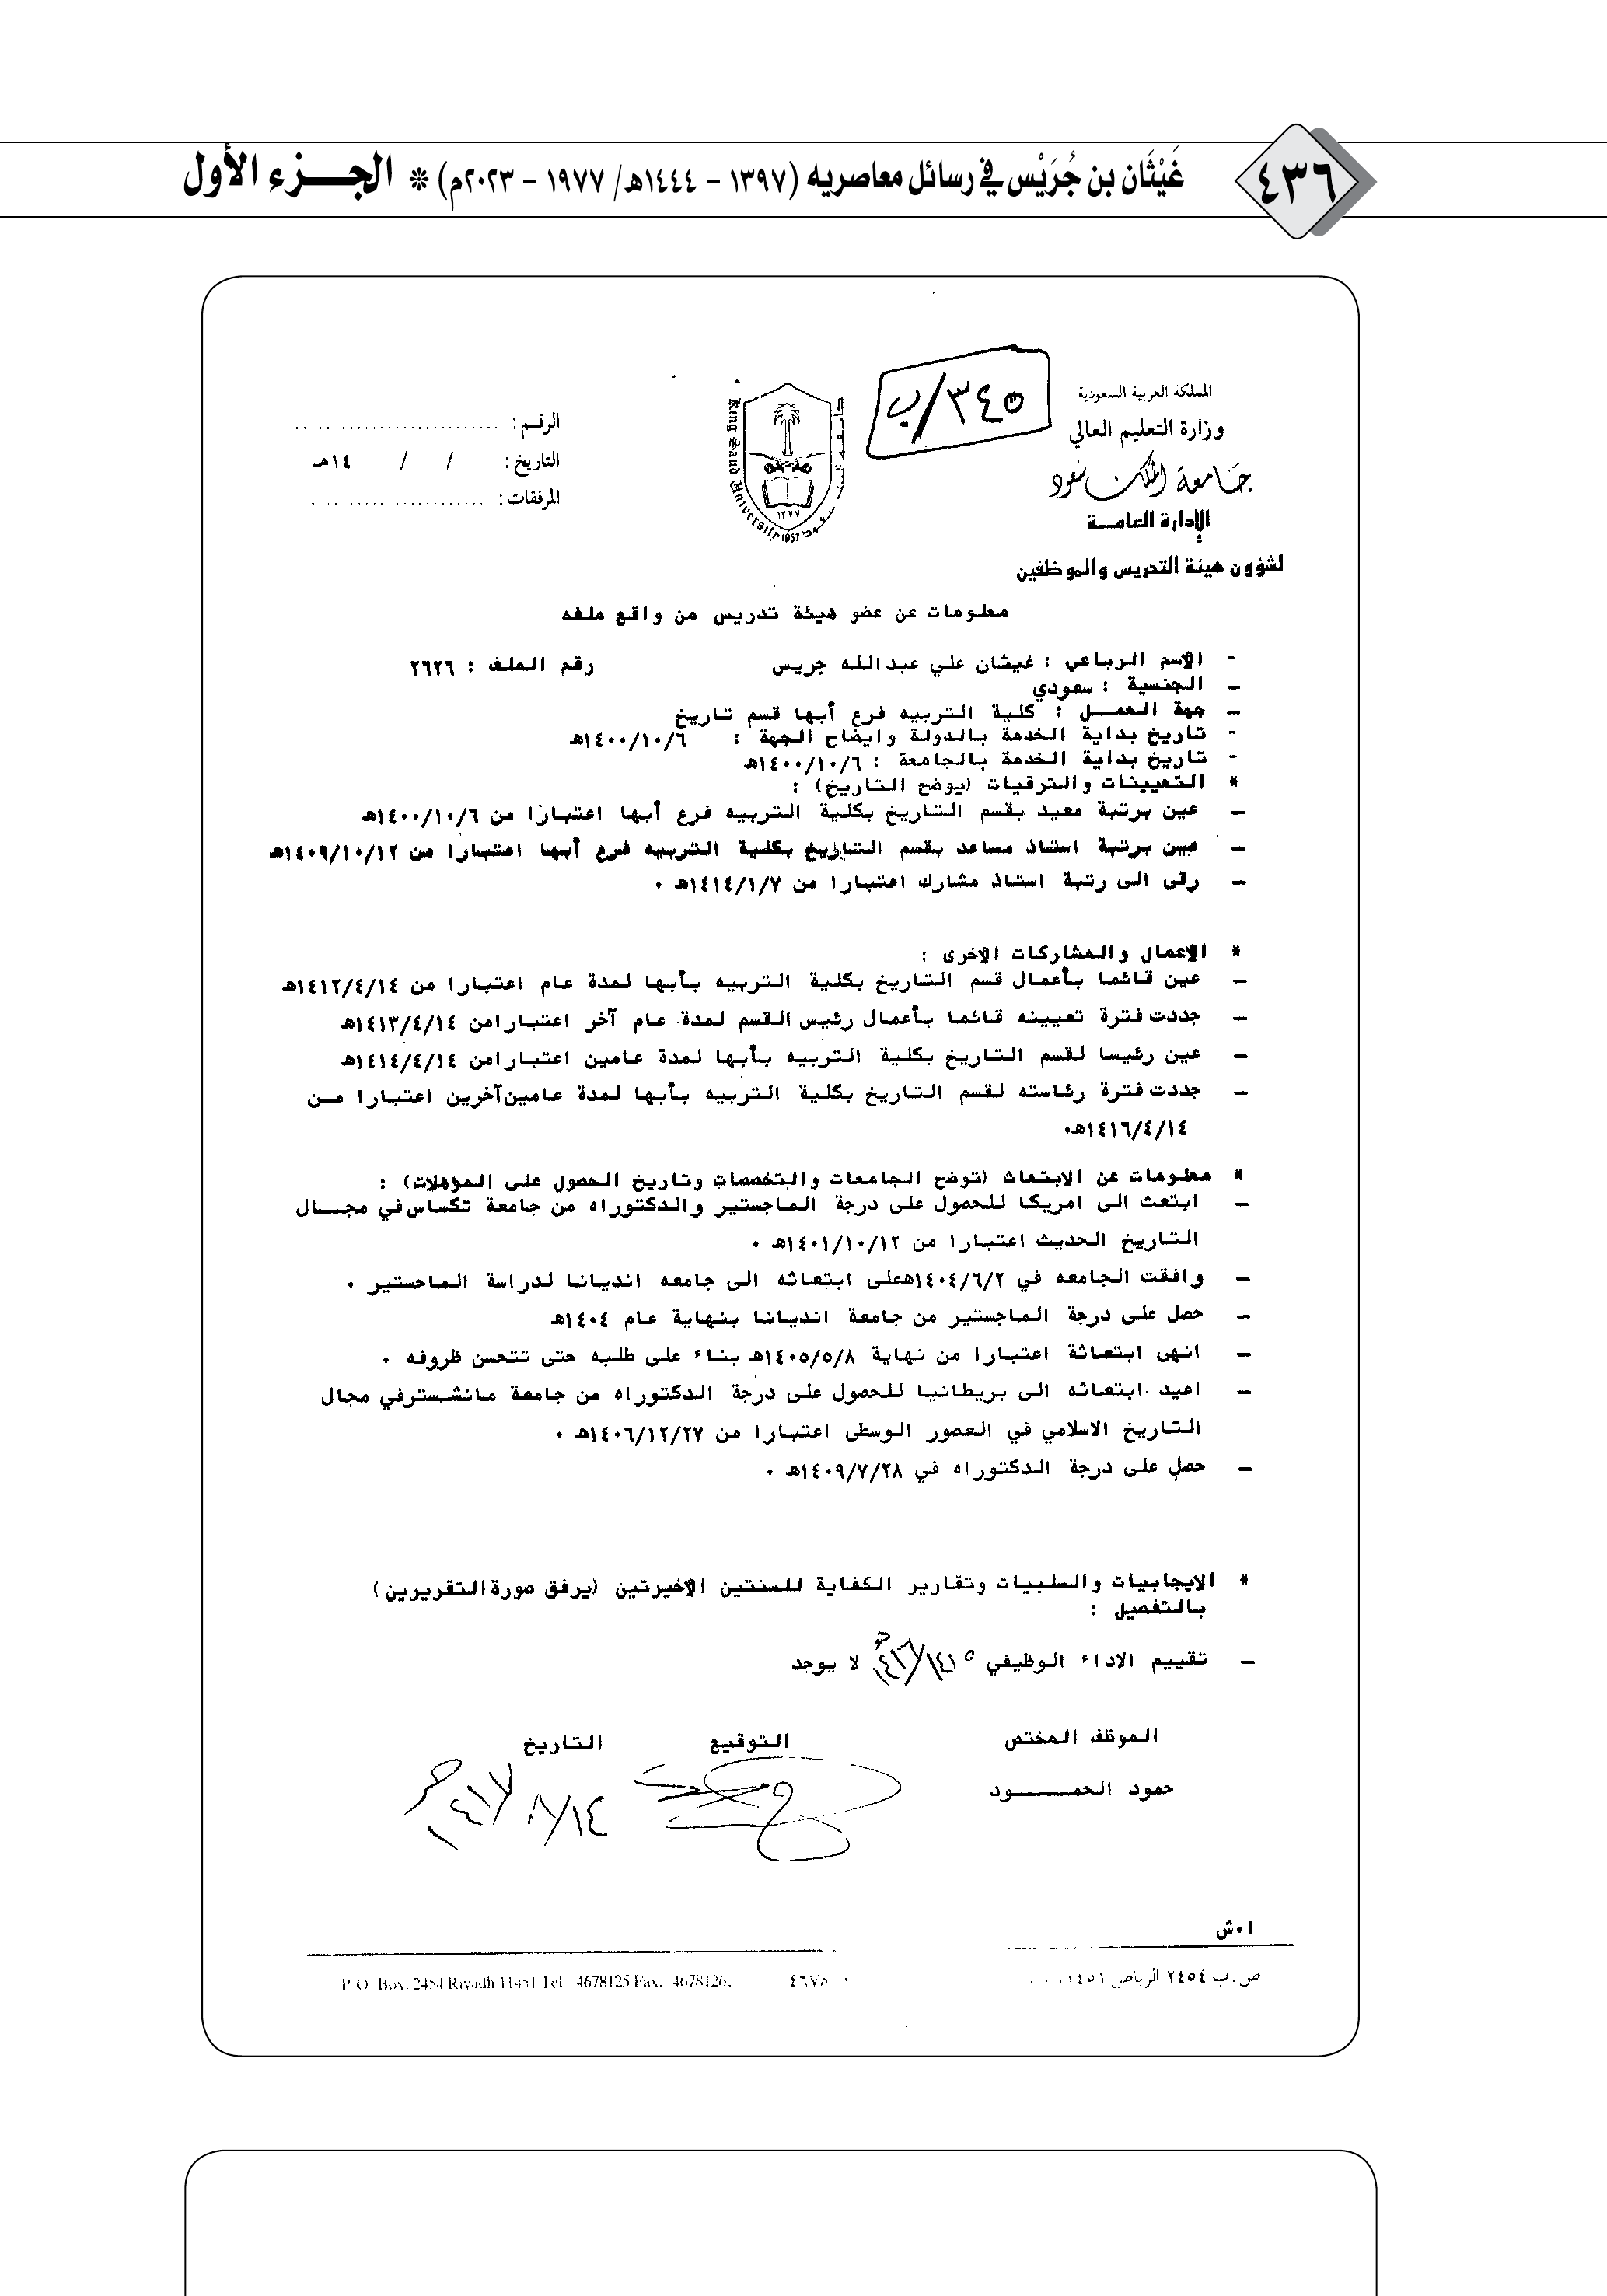 ٤٣٦
غَيْثَان بن جُرَيْس في رسائل معاصريه (١٣٩٧ - ١٤٤٤هـ/ ١٩٧٧ - ٢٠٢٣م) * الجـــزء الأول
المملكة العربية السعودية
وزارة التعليم العالي
جامعة الملك سعود
الإدارة العامـــة
لشؤون هيئة التدريس والموظفين
٣٤٥/ب
King Saud University 1957
١٣٧٧
الرقـم : ..........................
التاريخ :    /    /    ١٤هـ
المرفقات : ..........................
معلومات عن عضو هيئة تدريس من واقع ملفه
- الاسم الرباعي : غيثان علي عبدالله جريس    رقم الملف : ٢٦٢٦
- الجنسية : سعودي
- جهة العمــل : كلية التربيه فرع أبها قسم تاريخ
- تاريخ بداية الخدمة بالدولة وايضاح الجهة : ١٤٠٠/١٠/٦هـ
- تاريخ بداية الخدمة بالجامعة : ١٤٠٠/١٠/٦هـ
* التعيينات والترقيات (يوضح التاريخ) :
- عين برتبة معيد بقسم التاريخ بكلية التربيه فرع أبها اعتبارا من ١٤٠٠/١٠/٦هـ
- عين برتبة استاذ مساعد بقسم التاريخ بكلية التربيه فرع أبها اعتبارا من ١٤٠٩/١٠/١٢هـ
- رقى الى رتبة استاذ مشارك اعتبارا من ١٤١٤/١/٧هـ ٠
* الاعمال والمشاركات الاخرى :
- عين قائما بأعمال قسم التاريخ بكلية التربيه بأبها لمدة عام اعتبارا من ١٤١٢/٤/١٤هـ
- جددت فترة تعيينه قائما بأعمال رئيس القسم لمدة عام آخر اعتبارامن ١٤١٣/٤/١٤هـ
- عين رئيسا لقسم التاريخ بكلية التربيه بأبها لمدة عامين اعتبارامن ١٤١٤/٤/١٤هـ
- جددت فترة رئاسته لقسم التاريخ بكلية التربيه بأبها لمدة عامين آخرين اعتبارا مـن
١٤١٦/٤/١٤هـ٠
* معلومات عن الابتعاث (توضح الجامعات والتخصصات وتاريخ الحصول على المؤهلات) :
- ابتعث الى امريكا للحصول على درجة الماجستير والدكتوراه من جامعة تكساس في مجــال
التاريخ الحديث اعتبارا من ١٤٠١/١٠/١٢هـ ٠
- وافقت الجامعه في ١٤٠٤/٦/٢هـعلى ابتعاثه الى جامعه انديانا لدراسة الماجستير ٠
- حصل على درجة الماجستير من جامعة انديانا بنهاية عام ١٤٠٤هـ
- انهى ابتعاثة اعتبارا من نهاية ١٤٠٥/٥/٨هـ بناء على طلبه حتى تتحسن ظروفه ٠
- اعيد ابتعاثه الى بريطانيا للحصول على درجة الدكتوراه من جامعة مانشسترفي مجال
التاريخ الاسلامي في العصور الوسطى اعتبارا من ١٤٠٦/١٢/٢٧هـ ٠
- حصل على درجة الدكتوراه في ١٤٠٩/٧/٢٨هـ ٠
* الايجابيات والسلبيات وتقارير الكفاية للسنتين الاخيرتين (يرفق صورة التقريرين)
بالتفصيل :
- تقييم الاداء الوظيفي ١٤١٥/١٤١٦هـ لا يوجد
الموظف المختص    التوقيع    التاريخ
حمود الحمـــــود    ١٤١٧/٨/١٤هـ
٠١ش
ص.ب ٢٤٥٤ الرياض ١١٤٥١
٤٦٧٨
P.O. Box: 2454 Riyadh 11451 Tel 4678125 Fax. 4678126.